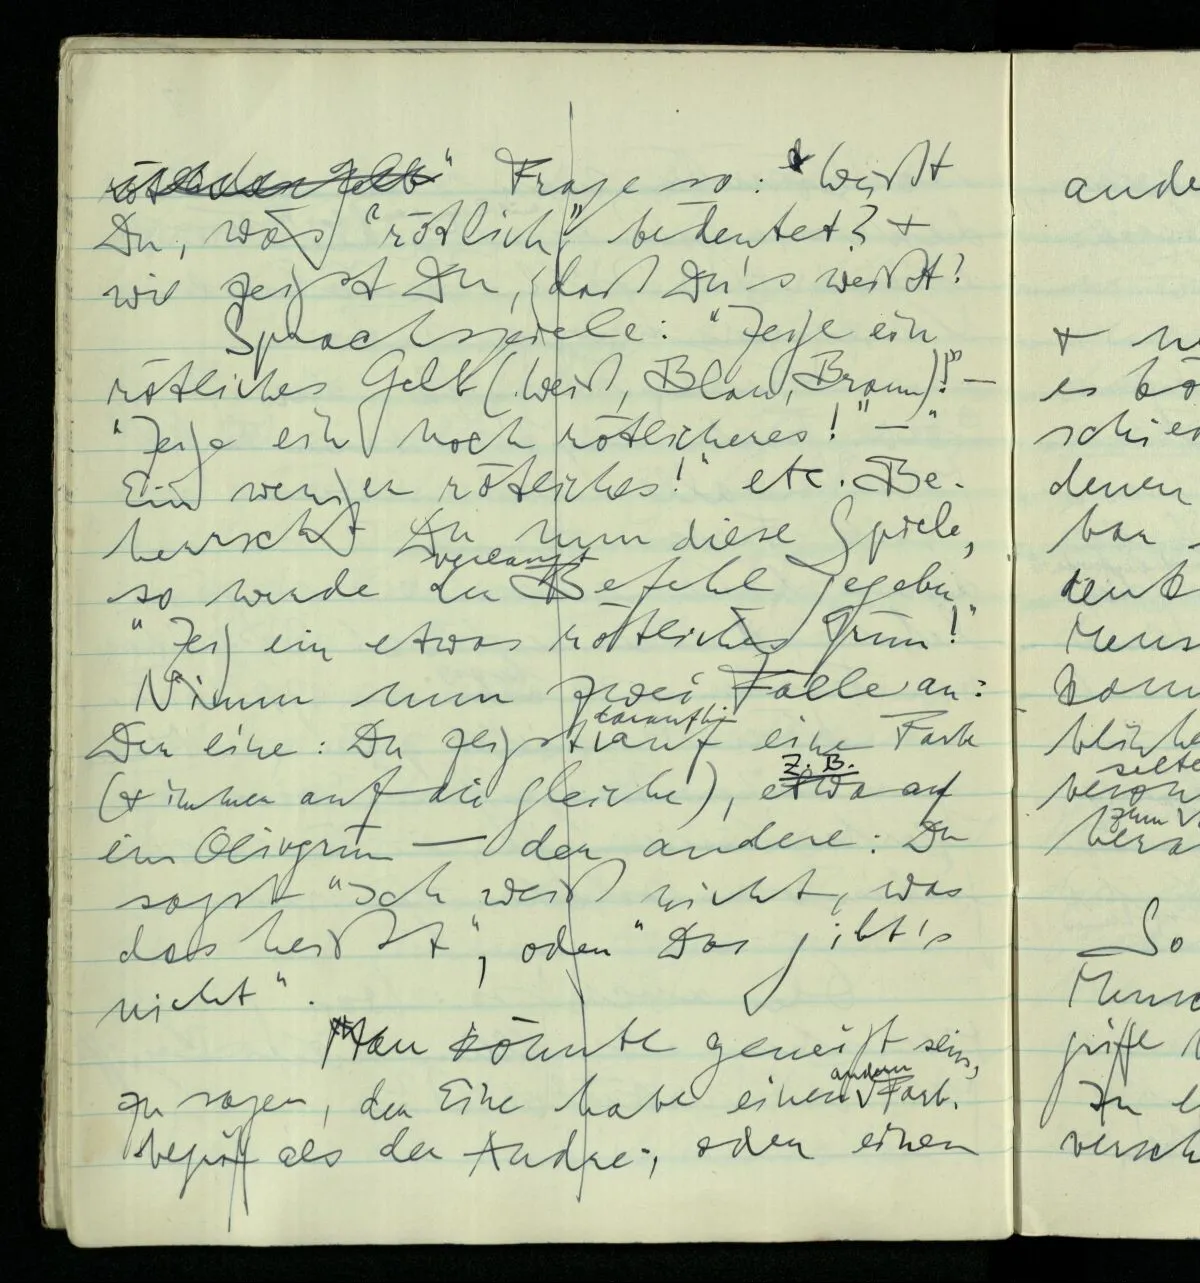 rötliches Gelb" Frage so: Weißt
Du, was "rötlich" bedeutet? +
wie zeigst Du, daß Du's weißt?
Sprachspiele: "Zeige ein
rötliches Gelb (Weiß, Blau, Braun)!" —
"Zeige ein noch rötlicheres!" — "
Ein weniger rötliches!" etc. Be-
herrscht Du nun diese Spiele,
verlangt
so wurde der Befehl gegeben
"Zeig ein etwas rötliches Grün!"
Nimm nun zwei Fälle an:
daraufhin
Der eine: Du zeigst auf eine Farbe
Z. B.
(+ immer auf die gleiche), etwa auf
ein Olivgrün — der andere: Du
sagst "Ich weiß nicht, was
das heißt", oder "Das gibt's
nicht".
Man könnte geneigt sein,
andern
zu sagen, der Eine habe einen Farb-
begriff als der Andre; oder einen
ande
+
es
schie
denen
Mens
selte
zum
So
Mensc
In
versch